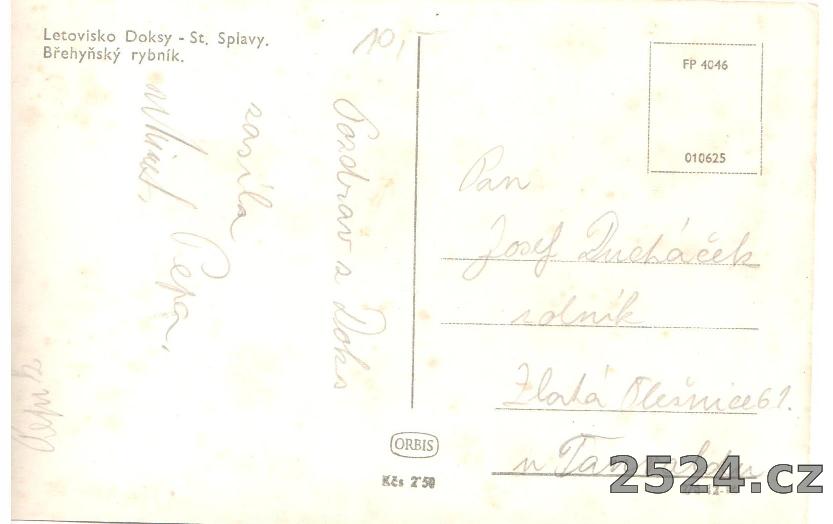 Letovisko Doksy - St. Splavy.
Břehyňský rybník.
10,-
Pozdrav z Doks
zasílá
Pepa.
FP 4046
010625
Pan
Josef Ducháček
rolník
Zlatá Olešnice 61.
u
ORBIS
Kčs 2·50
2524.cz